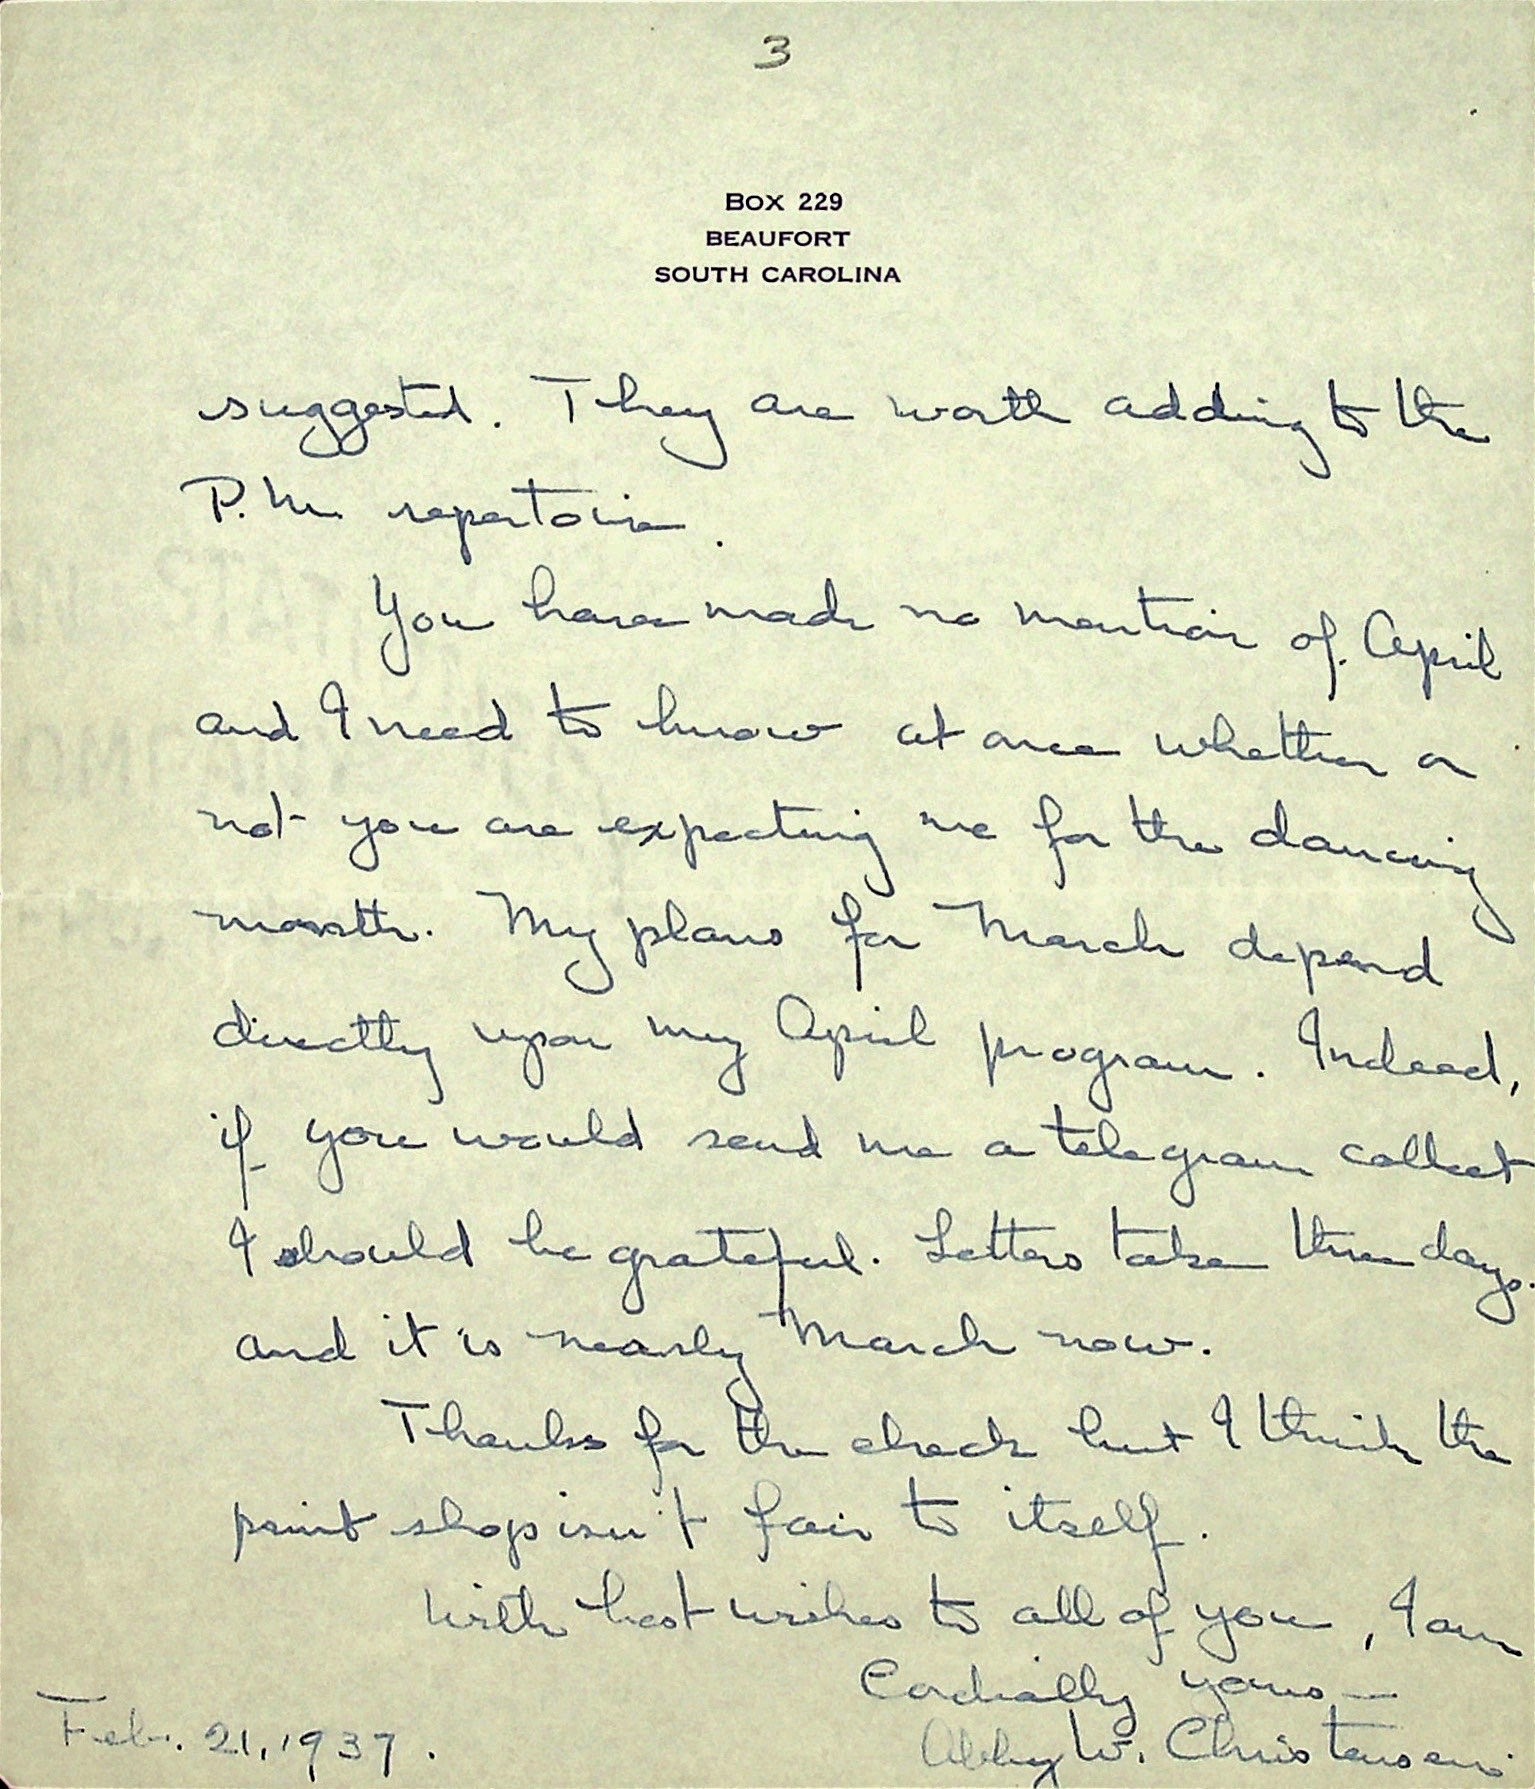 3
BOX 229
BEAUFORT
SOUTH CAROLINA
suggested. They are worth adding to the
P.M. repertoire.
You have made no mention of April
and I need to know at once whether or
not you are expecting me for the dancing
month. My plans for March depend
directly upon my April program. Indeed,
if you would send me a telegram collect
I should be grateful. Letters take three days.
and it is nearly March now.
Thanks for the check but I think the
print shop isn't fair to itself.
With best wishes to all of you, I am
Cordially yours—
Abby W. Christensen.
Feb. 21, 1937.